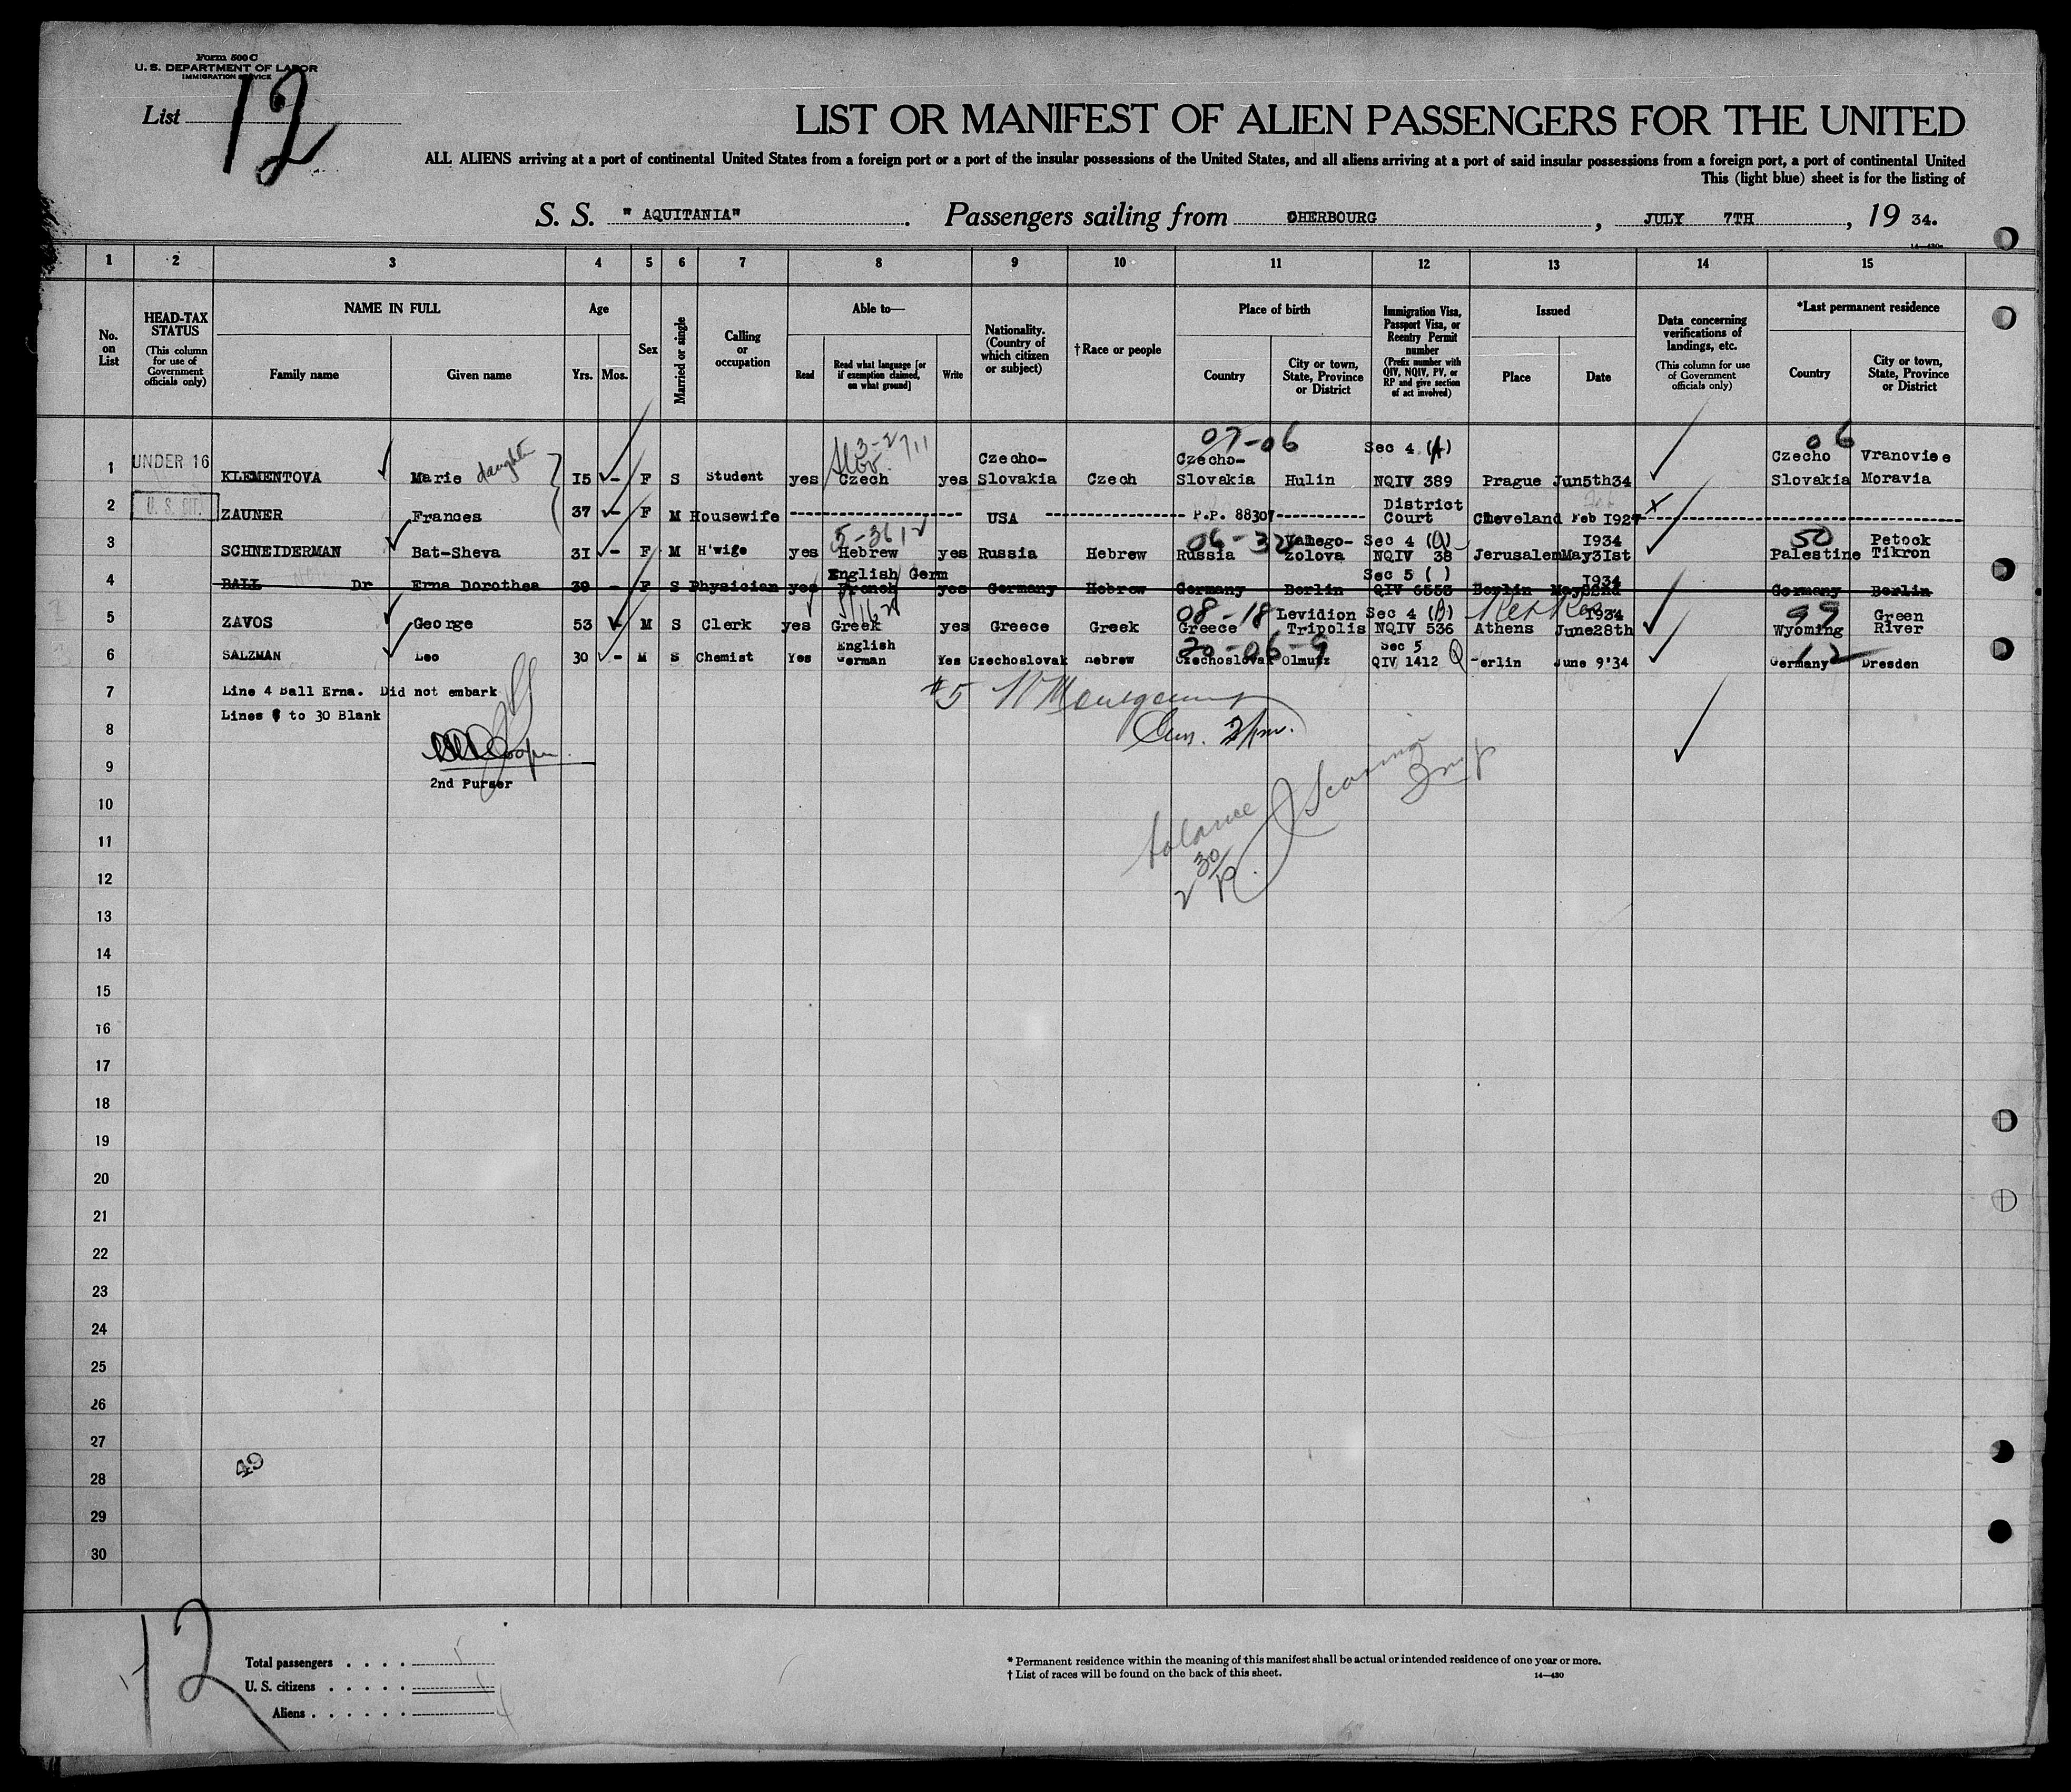 Form 500 C
U. S. DEPARTMENT OF LABOR
IMMIGRATION SERVICE
List 12
LIST OR MANIFEST OF ALIEN PASSENGERS FOR THE UNITED
ALL ALIENS arriving at a port of continental United States from a foreign port or a port of the insular possessions of the United States, and all aliens arriving at a port of said insular possessions from a foreign port, a port of continental United
This (light blue) sheet is for the listing of
S. S. "AQUITANIA". Passengers sailing from CHERBOURG, JULY 7TH, 19 34.
1 2 3 4 5 6 7 8 9 10 11 12 13 14 15
No. on List
HEAD-TAX STATUS (This column for use of Government officials only)
NAME IN FULL
Family name Given name
Age
Yrs. Mos.
Sex
Married or single
Calling or occupation
Able to—
Read Read what language [or if exemption claimed, on what ground] Write
Nationality. (Country of which citizen or subject)
†Race or people
Place of birth
Country City or town, State, Province or District
Immigration Visa, Passport Visa, or Reentry Permit number (Prefix number with QIV, NQIV, PV, or RP and give section of act involved)
Issued
Place Date
Data concerning verifications of landings, etc. (This column for use of Government officials only)
*Last permanent residence
Country City or town, State, Province or District
07-06 06
1 UNDER 16 KLEMENTOVA Marie daughter 15 - F S Student yes Czech yes Czecho-Slovakia Czech Czecho-Slovakia Hulin Sec 4 (A) NQIV 389 Prague Jun5th34 Czecho Slovakia Vranoviee Moravia
2 U. S. CIT. ZAUNER Frances 37 - F M Housewife USA P.P. 88307 District Court Cleveland Feb 1927
5-3612 06-32 50
3 SCHNEIDERMAN Bat-Sheva 31 - F M H'wife yes Hebrew yes Russia Hebrew Russia zolova Sec 4 NQIV 38 Jerusalem May31st 1934 Palestine Petock Tikron
4 BALL Dr Erna Dorothea 39 - F S Physician yes English Germ French yes Germany Hebrew Germany Berlin Sec 5 ( ) QIV 6553 Berlin May22nd 1934 Germany Berlin
08-18 99
5 ZAVOS George 53 - M S Clerk yes Greek yes Greece Greek Greece Levidion Tripolis Sec 4 (B) NQIV 536 Athens June28th 1934 Wyoming Green River
30-06-9 12
6 SALZMAN Leo 30 - M S Chemist Yes English German Yes Czechoslovak Hebrew Czechoslovak Olmutz Sec 5 QIV 1412 erlin June 9'34 Germany Dresden
7 Line 4 Ball Erna. Did not embark
#5
Lines to 30 Blank
8
9
2nd Purser
10
11
12
13
14
15
16
17
18
19
20
21
22
23
24
25
26
27
49
28
29
30
12
Total passengers . . . . 5
U. S. citizens . . . . . 1
Aliens . . . . . . 4
* Permanent residence within the meaning of this manifest shall be actual or intended residence of one year or more.
† List of races will be found on the back of this sheet.
14—430